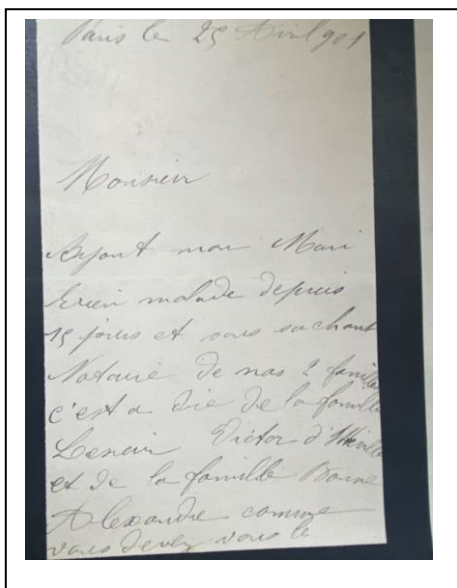 Paris le 25 Avril 901
Monsieur
Ayant mon Mari
bien malade depuis
15 jours et vous sachant
Notaire de nos 2 famille
c'est a die de la famille
Lenoir Victor
et de la famille
Alexandre comme
vous devez vous le